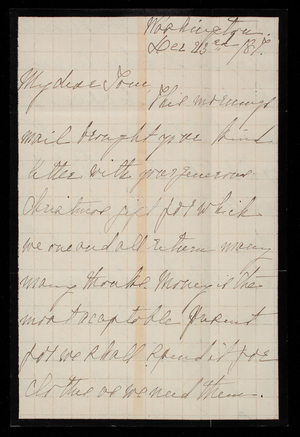 Washington.
Dec 23rd /87.
My dear Tom
This mornings
mail brought your kind
letter with your generous
Christmas gift for which
we one and all return many
many thanks Money is the
most acceptable present
for we shall spend it for
clothes as we need them.